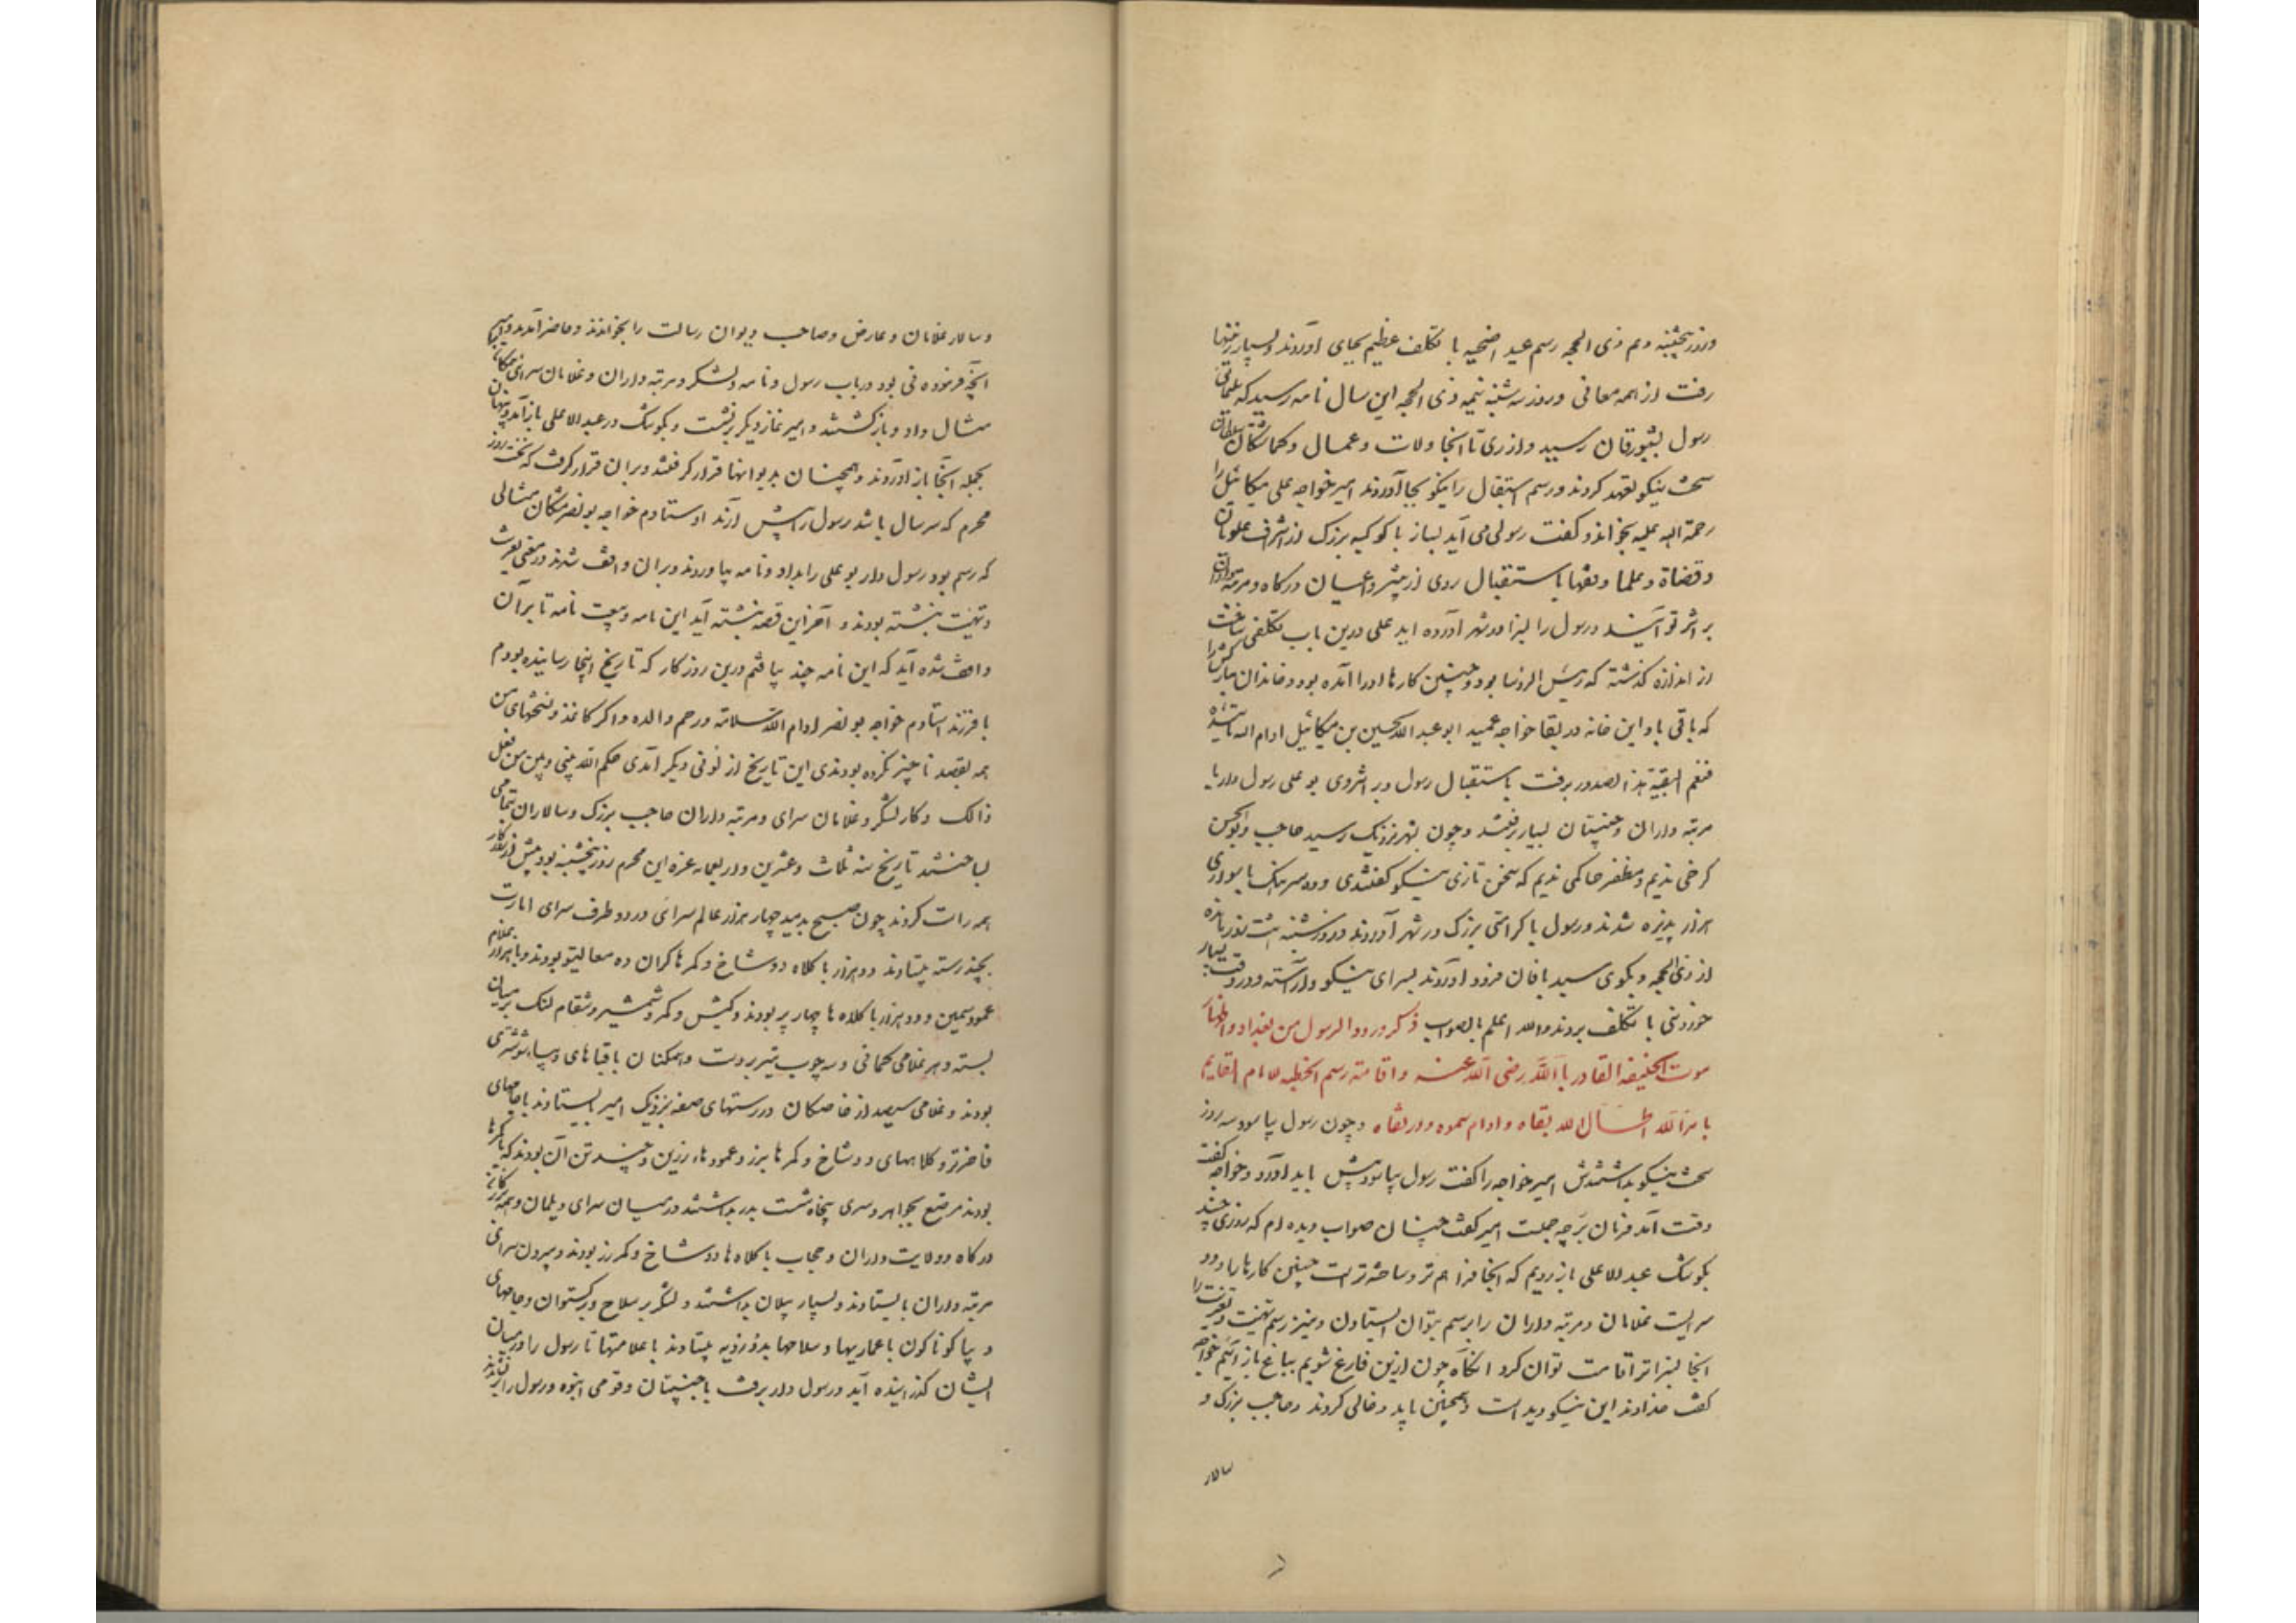 وروز پنجشنبه دهم ذی الحجه رسم عید اضحیه با تکلف عظیم بجای آوردند و بسیار زینتها
رفت از همه معانی و روز سه شنبه نیمه ذی الحجه این سال نامه رسید که سلیمانی
رسول بشبورقان رسید و از ری تا اینجا ولات و عمال و گماشتگان سلطان
سخت نیکو تعهد کردند و رسم استقبال را نیکو بجا آوردند امیر خواجه علی میکائیل را
رحمة الله علیه بخواند و گفت رسولی می آید بساز با کوکبه بزرگ از اشراف علویان
و قضاة و علما و فقها باستقبال روی از پیشتر و اعیان درگاه و مرتبه داران
بر اثر تو آیند و رسول را بسزا در شهر آورده آید علی درین باب تکلفی ساخت
از اندازه گذشته که رئیس الرؤسا بود و چنین کارها او را آمده بود و خاندان مبارکش را
که باقی باد این خانه در بقا خواجه عمید ابو عبد الله حسین بن میکائیل ادام الله تاییده
فنعم البقیة هذا الصدور برفت باستقبال رسول و بر اثر وی بو علی رسولدار با
مرتبه داران و جنیبتان بسیار رفتند و چون بشهر نزدیک رسید حاجب و بوالحسن
کرخی ندیم و مظفر حاکمی ندیم که سخن تازی نیکو گفتندی و ده سرهنگ با سواری
هزار پذیره شدند و رسول با کرامتی بزرگ در شهر آوردند و روز شنبه هشت روز مانده
از ذی الحجه و بکوی سید بافان فرود آوردند بسرای نیکو و آراسته و در وقت بسیار
خوردنی با تکلف بردند والله اعلم بالصواب ذکر ورود الرسول من بغداد و اظهار
موت الخلیفه القادر بالله رضی الله عنه و اقامته رسم الخطبه للامام القایم
بامر الله اطال الله بقاه و ادام سموه و ورتقاه و چون رسول بیاسود سه روز
سخت نیکو بداشتندش امیر خواجه را گفت رسول بیاسود پیش باید آورد و خواجه گفت
وقت آمد فرمان بر چه جملت امیر گفت چنان صواب دیده ام که روزی چند
بکوشک عبد الاعلی باز رویم که آنجا فراهم تر و ساخته تر است چنین کارها را و دو
سرایست غلامان و مرتبه داران را برسم بتوان ایستادن و نیز رسم تهنیت و تعزیت را
آنجا بسزاتر اقامت توان کرد آنگاه چون ازین فارغ شویم بباغ باز آئیم خواجه
گفت خداوند این نیکو دیده است و همچنین باید و خالی کردند و حاجب بزرگ و
سالار
و سالار غلامان و عارض و صاحب دیوان رسالت را بخواندند و حاضر آمدند و امیر
آنچه فرمودنی بود در باب رسول و نامه و لشکر و مرتبه داران و غلامان سرای همگان
مثال داد و باز گشتند و امیر نماز دیگر برنشست و بکوشک در عبد الاعلی باز آمد و بنهان
بجمله آنجا باز آوردند و همچنان بدیوانها قرار گرفتند و بران قرار گرفت که نخست روز
محرم که سر سال باشد رسول را پیش آرند اوستادم خواجه بو نصر مشکان مثالی
که رسم بود رسول دار بو علی را بداد و نامه بیاوردند و بران واقف شدند در معنی تعزیت
و تهنیت نبشته بودند و آخر این قصه نبشته آید این نامه و بیعت نامه تا بر آن
واقف شده آید که این نامه چند بیافتم درین روزگار که تاریخ اینجا رسانیده بودم
با فرزند استادم خواجه بو نصر ادام الله سلامته و رحم والده و اگر کاغذ و نسختهای من
همه بقصد ناچیز نکرده بودندی این تاریخ از لونی دیگر آمدی حکم الله بینی و بین من فعل
ذالک و کار لشکر و غلامان سرای و مرتبه داران حاجب بزرگ و سالاران بتمامی
بساختند تاریخ سنه ثلاث و عشرین و اربعمایه غره این محرم روز پنجشنبه بود پیش از روز کار
همه راست کردند چون صبح بدمید چهار هزار غلام سرائی در دو طرف سرای امارت
بچند رسته بیستادند دو هزار با کلاه دو شاخ و کمرها گران ده معالیق بودند و با هر غلام
عمود سیمین و دو هزار با کلاه ها چهار پر بودند و کیش و کمر و شمشیر و شقا و نیم لنگ بر میان
بسته و هر غلامی کمانی و سه چوب تیر بر دست و همگنان با قباهای دیبا شوشتری
بودند و غلامی سیصد از خاصگان در رستهای صفه نزدیک امیر ایستادند با جامهای
فاخرتر و کلاههای دو شاخ و کمرها بزر و عمودهاء زرین و چند تن آن بودند که با کمرها
بودند مرصع بجواهر و سری پنجاه شست بدر بداشتند در میان سرای دیلمان و همه بزرگان
درگاه و ولایت داران و حجاب با کلاه ها دو شاخ و کمر زر بودند و بیرون سرای
مرتبه داران بایستادند و بسیار پیلان بداشتند و لشکر بر سلاح و برگستوان و جامهای
دیبا گوناگون با عماریها و سلاحها بدو رویه بیستادند با علامتها تا رسول را در میان
ایشان گذرانیده آید و رسول دار برفت با جنیبتان و قومی انبوه و رسول را بر نشاندند